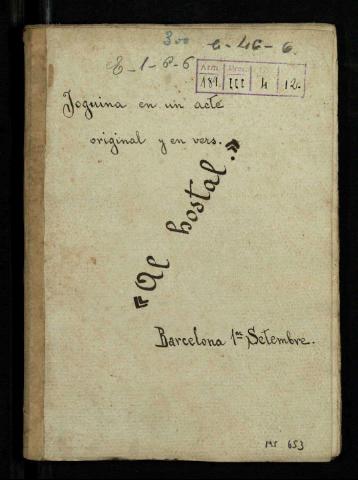 300 C-46-6.
E-1-6-6
181. III 4 12.
Joguina en un acte
original y en vers.
"Al hostal."
Barcelona 1er Setembre.
MS 653